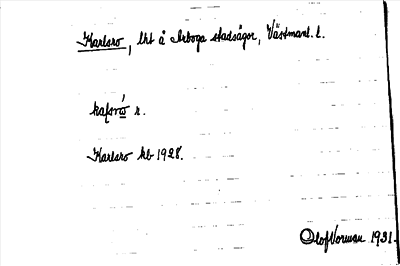 Karlsro, lht å Arboga stadsägor, Västmanl. l.
r.
Karlsro kb 1928.
Olof Norman 1931.